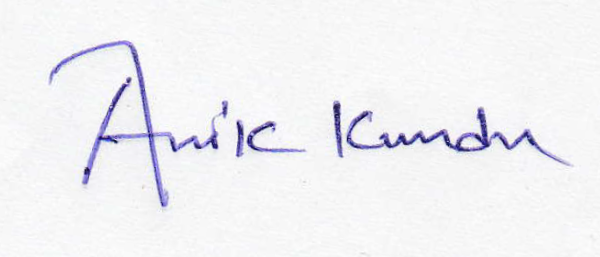 Anik Kundu